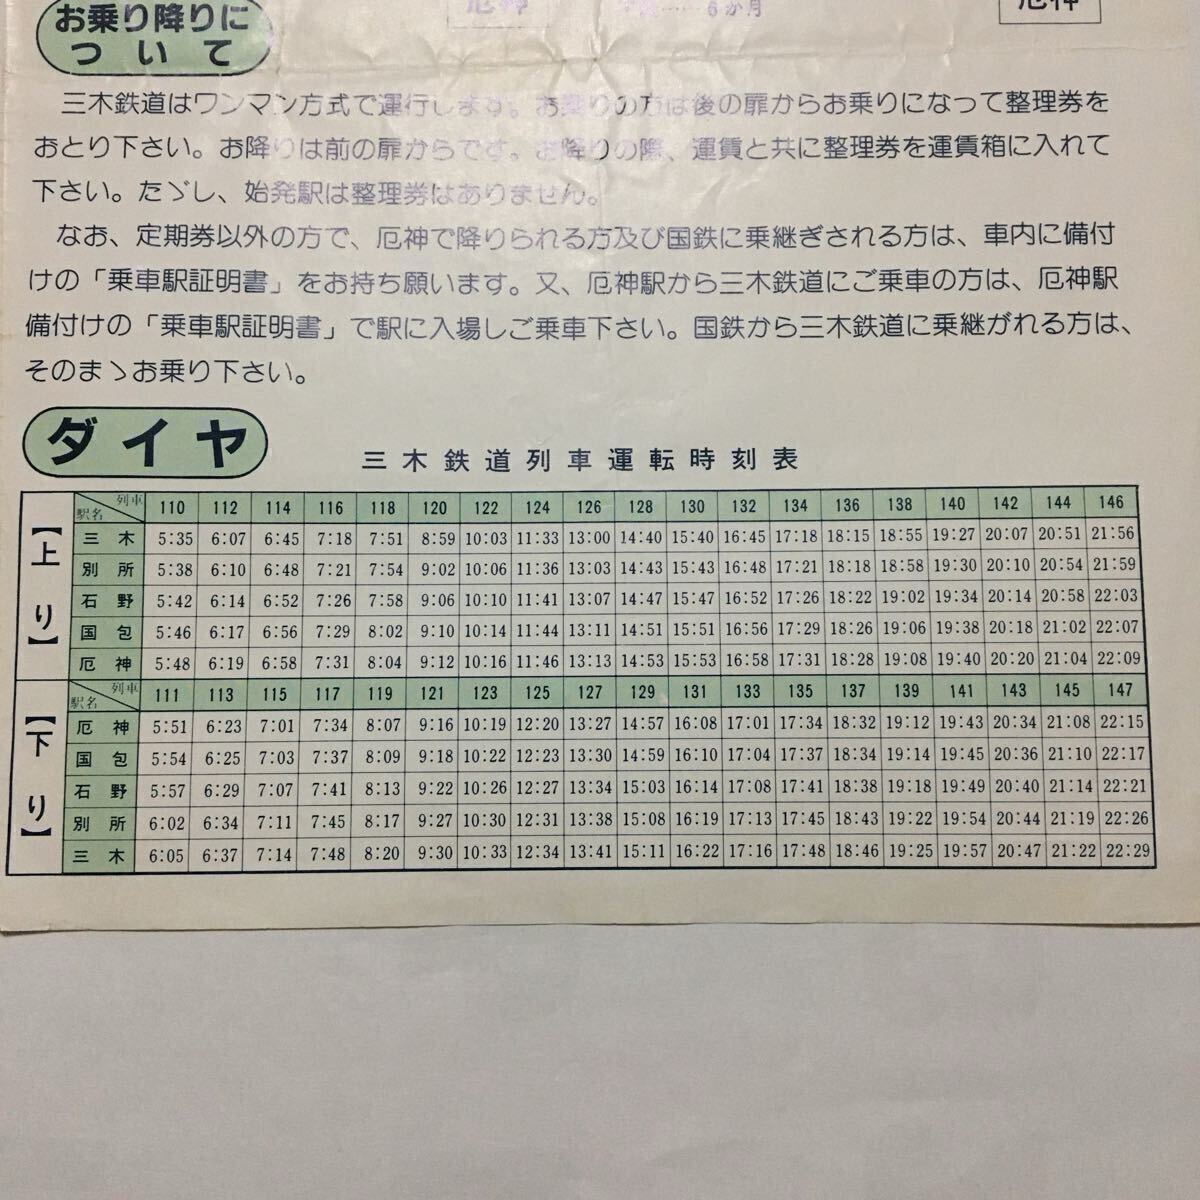 厄神
6か月
厄神
お乗り降りに
ついて
三木鉄道はワンマン方式で運行します。お乗りの方は後の扉からお乗りになって整理券を
おとり下さい。お降りは前の扉からです。お降りの際、運賃と共に整理券を運賃箱に入れて
下さい。たゞし、始発駅は整理券はありません。
なお、定期券以外の方で、厄神で降りられる方及び国鉄に乗継ぎされる方は、車内に備付
けの「乗車駅証明書」をお持ち願います。又、厄神駅から三木鉄道にご乗車の方は、厄神駅
備付けの「乗車駅証明書」で駅に入場しご乗車下さい。国鉄から三木鉄道に乗継がれる方は、
そのまゝお乗り下さい。
ダイヤ
三木鉄道列車運転時刻表
【上り】
列車 駅名 110 112 114 116 118 120 122 124 126 128 130 132 134 136 138 140 142 144 146
三木 5:35 6:07 6:45 7:18 7:51 8:59 10:03 11:33 13:00 14:40 15:40 16:45 17:18 18:15 18:55 19:27 20:07 20:51 21:56
別所 5:38 6:10 6:48 7:21 7:54 9:02 10:06 11:36 13:03 14:43 15:43 16:48 17:21 18:18 18:58 19:30 20:10 20:54 21:59
石野 5:42 6:14 6:52 7:26 7:58 9:06 10:10 11:41 13:07 14:47 15:47 16:52 17:26 18:22 19:02 19:34 20:14 20:58 22:03
国包 5:46 6:17 6:56 7:29 8:02 9:10 10:14 11:44 13:11 14:51 15:51 16:56 17:29 18:26 19:06 19:38 20:18 21:02 22:07
厄神 5:48 6:19 6:58 7:31 8:04 9:12 10:16 11:46 13:13 14:53 15:53 16:58 17:31 18:28 19:08 19:40 20:20 21:04 22:09
【下り】
列車 駅名 111 113 115 117 119 121 123 125 127 129 131 133 135 137 139 141 143 145 147
厄神 5:51 6:23 7:01 7:34 8:07 9:16 10:19 12:20 13:27 14:57 16:08 17:01 17:34 18:32 19:12 19:43 20:34 21:08 22:15
国包 5:54 6:25 7:03 7:37 8:09 9:18 10:22 12:23 13:30 14:59 16:10 17:04 17:37 18:34 19:14 19:45 20:36 21:10 22:17
石野 5:57 6:29 7:07 7:41 8:13 9:22 10:26 12:27 13:34 15:03 16:14 17:08 17:41 18:38 19:18 19:49 20:40 21:14 22:21
別所 6:02 6:34 7:11 7:45 8:17 9:27 10:30 12:31 13:38 15:08 16:19 17:13 17:45 18:43 19:22 19:54 20:44 21:19 22:26
三木 6:05 6:37 7:14 7:48 8:20 9:30 10:33 12:34 13:41 15:11 16:22 17:16 17:48 18:46 19:25 19:57 20:47 21:22 22:29